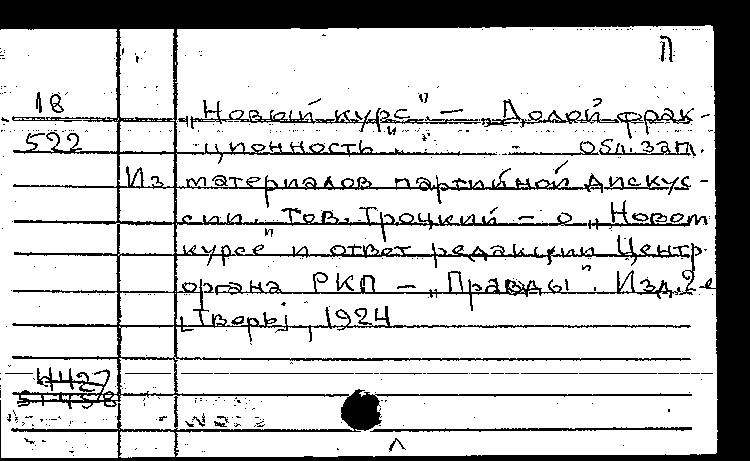 П
18
„Новый курс" – „Долой фрак-
522
ционность" – Обл. загл.
Из материалов партийной дискус-
сии. Тов. Троцкий – о „Новом
курсе" и ответ редакции Центр.
органа РКП – „Правды". Изд. 2-е
[Тверь], 1924
4427
51458